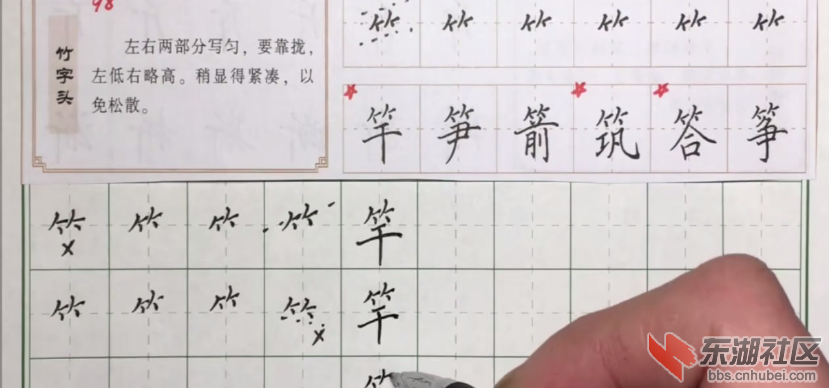 98
竹字头
左右两部分写匀，要靠拢，
左低右略高。稍显得紧凑，以
免松散。
⺮ ⺮ ⺮ ⺮ ⺮ ⺮
竿 笋 箭 筑 答 筝
⺮ ⺮ ⺮ ⺮ 竿
×
⺮ ⺮ ⺮ ⺮ 竿
×
⺮
东湖社区
bbs.cnhubei.com